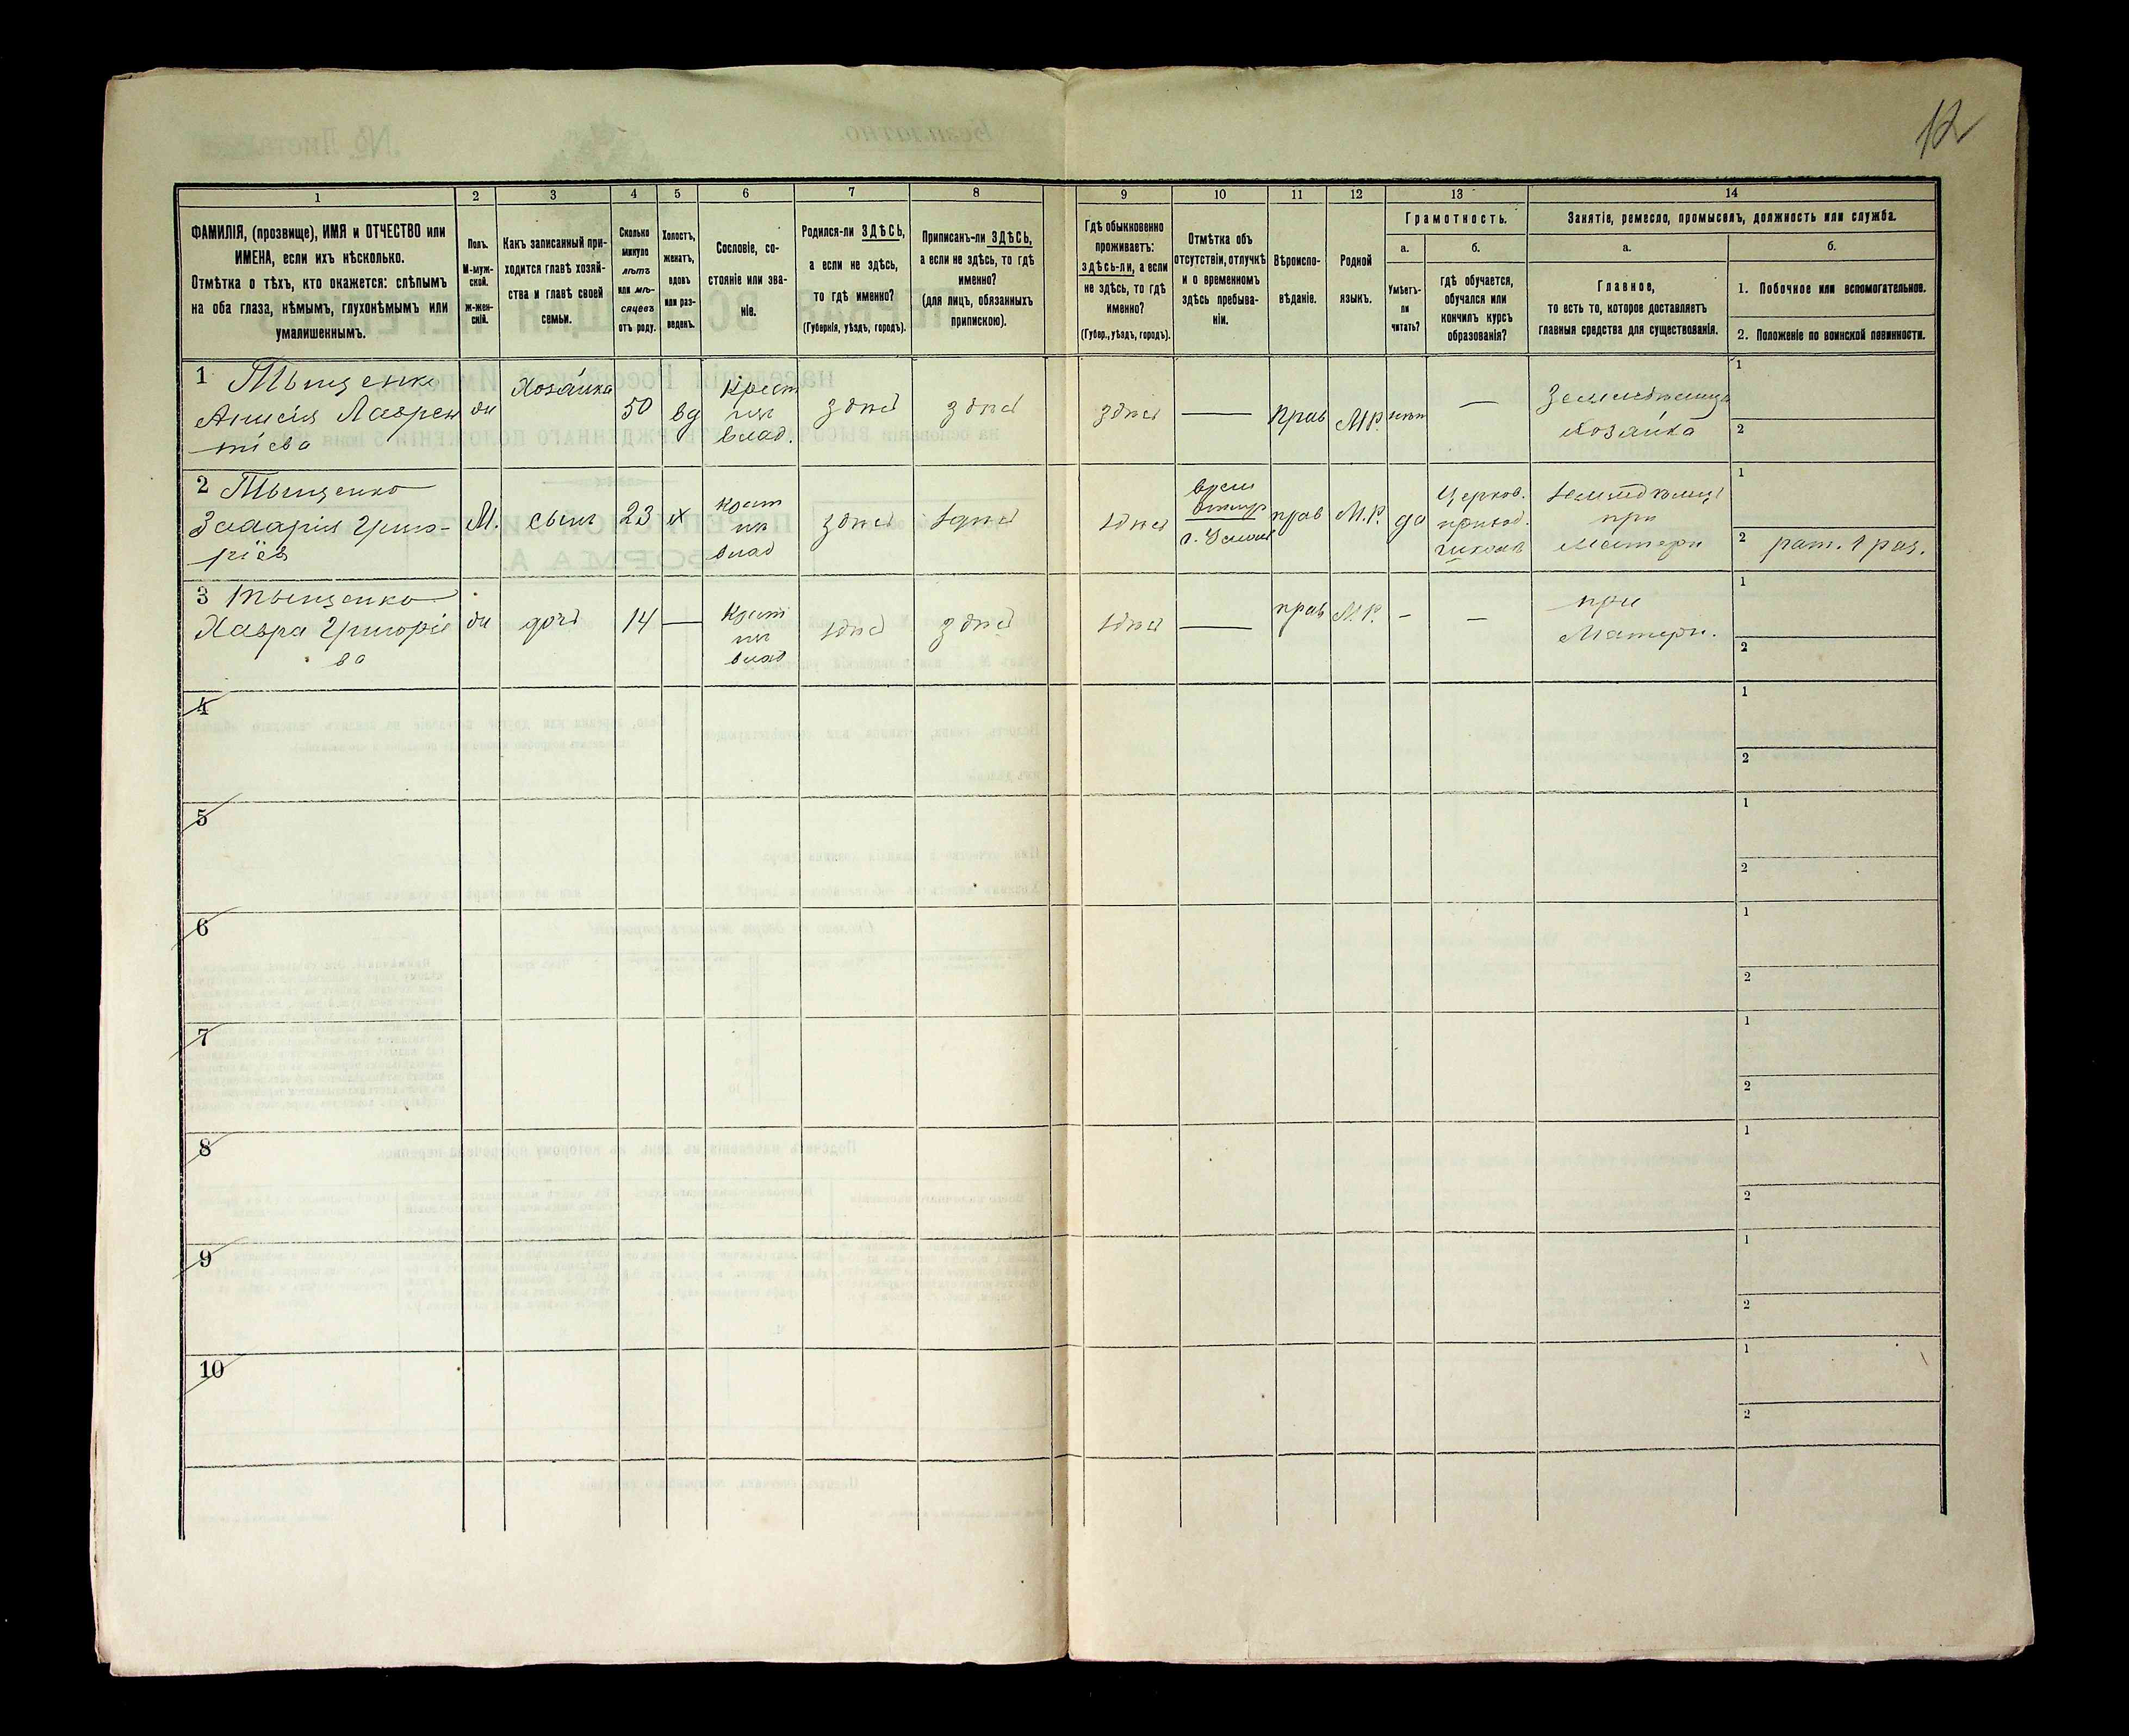 12
1
2
3
4
5
6
7
8
9
10
11
12
13
14
ФАМИЛІЯ, (прозвище), ИМЯ и ОТЧЕСТВО или
ИМЕНА, если ихъ нѣсколько.
Отмѣтка о тѣхъ, кто окажется: слѣпымъ
на оба глаза, нѣмымъ, глухонѣмымъ или
умалишеннымъ.
Полъ.
М-муж-
ской.
ж-жен-
скій.
Какъ записанный при-
ходится главѣ хозяй-
ства и главѣ своей
семьи.
Сколько
минуло
лѣтъ
или мѣ-
сяцевъ
отъ роду.
Холостъ,
женатъ,
вдовъ
или раз-
веденъ.
Сословіе, со-
стояніе или зва-
ніе.
Родился-ли ЗДѢСЬ,
а если не здѣсь,
то гдѣ именно?
(Губернія, уѣздъ, городъ).
Приписанъ-ли ЗДѢСЬ,
а если не здѣсь, то гдѣ
именно?
(для лицъ, обязанныхъ
припискою).
Гдѣ обыкновенно
проживаетъ:
здѣсь-ли, а если
не здѣсь, то гдѣ
именно?
(Губер., уѣздъ, городъ).
Отмѣтка объ
отсутствіи, отлучкѣ
и о временномъ
здѣсь пребыва-
ніи.
Вѣроиспо-
вѣданіе.
Родной
языкъ.
Грамотность.
а.
Умѣетъ-
ли
читать?
б.
гдѣ обучается,
обучался или
кончилъ курсъ
образованія?
Занятіе, ремесло, промыселъ, должность или служба.
а.
Главное,
то есть то, которое доставляетъ
главныя средства для существованія.
б.
1. Побочное или вспомогательное.
2. Положеніе по воинской повинности.
1 Тыщенко
Анисія Лаврен
тіева
Хозяйка
50
вд
Крест
влад.
здѣсь
здѣсь
здѣсь
—
прав
М.Р.
нѣт
—
Хозяйка
1
2
2 Тыщенко
Захарія Григо-
ріев
М.
сынъ
23
х
Крест
влад
здѣсь
здѣсь
здѣсь
прав
М.Р.
да
Церков.
приход.
при
Матери
1
2 рат. 1 раз.
3 Тыщенко
Хавра Григоріе
ва
дочь
14
—
Крест
влад
здѣсь
здѣсь
здѣсь
—
прав
М.Р.
-
-
при
Матери.
1
2
4
1
2
5
1
2
6
1
2
7
1
2
8
1
2
9
1
2
10
1
2